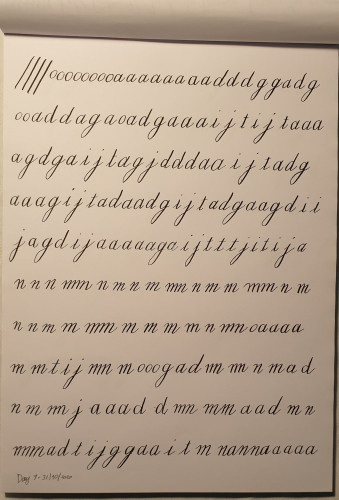 ////ooooooooaaaaaaaadddggadg
ooaddagaoadgaaaijtijtaaa
agdgaijtagjdddaaijtadg
aaagijtadaadgijtadgaagdii
jagdijaaaaagaijtttjitija
n n n mn n m n m mn n m m mm n m
n n m m mm m m m m n mn o a a a a
m m t i j mn m ooog a d m m n m a d
n m m j a a a d d mn mm a a d m n
mmadtijggaaitmnannaaaaa
Day 1 - 31/10/2020